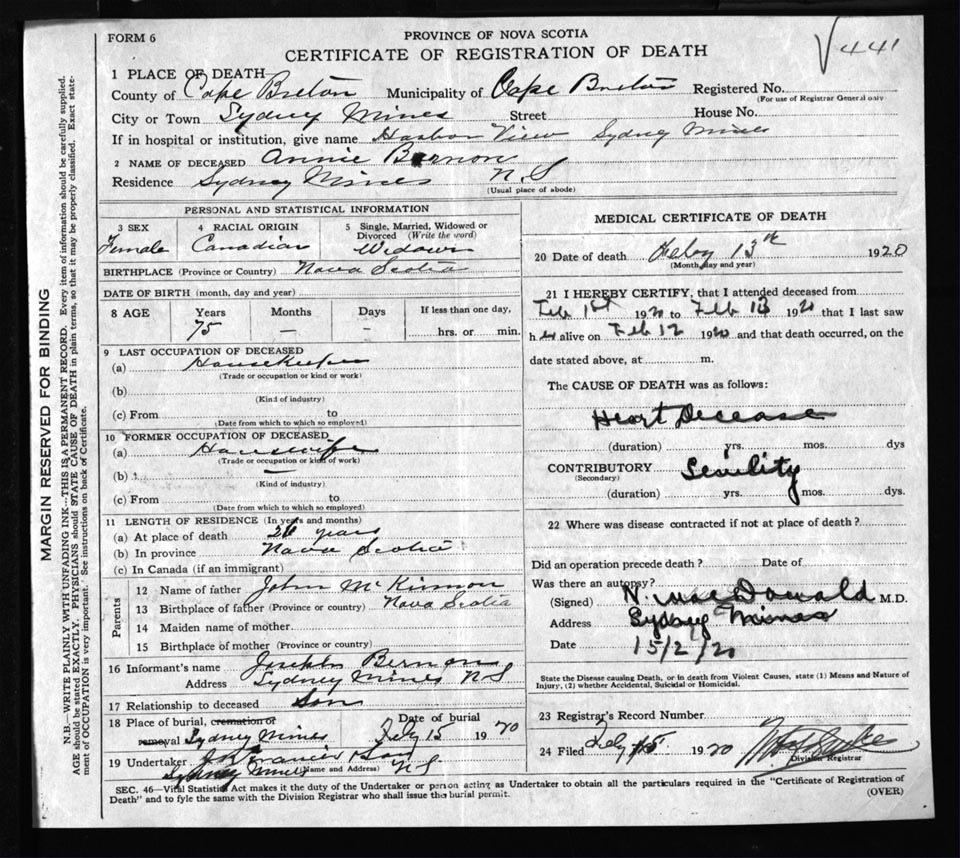 FORM 6
PROVINCE OF NOVA SCOTIA
CERTIFICATE OF REGISTRATION OF DEATH
√441
1 PLACE OF DEATH
County of Cape Breton Municipality of Cape Breton Registered No.
(For use of Registrar General only
City or Town Sydney Mines Street House No.
If in hospital or institution, give name Harbor View Sydney Mines
2 NAME OF DECEASED Annie Bernon
Residence Sydney Mines N S
(Usual place of abode)
PERSONAL AND STATISTICAL INFORMATION
3 SEX Female
4 RACIAL ORIGIN Canadian
5 Single, Married, Widowed or Divorced (Write the word) Widow
BIRTHPLACE (Province or Country) Nova Scotia
DATE OF BIRTH (month, day and year)
8 AGE Years Months Days If less than one day,
75 — — hrs. or min.
9 LAST OCCUPATION OF DECEASED
(a) Housekeeper
(Trade or occupation or kind or work)
(b)
(Kind of industry)
(c) From to
(Date from which to which so employed)
10 FORMER OCCUPATION OF DECEASED
(a) Housewife
(Trade or occupation or kind of work)
(b)
(Kind of industry)
(c) From to
(Date from which to which so employed)
11 LENGTH OF RESIDENCE (In years and months)
(a) At place of death years
(b) In province Nova Scotia
(c) In Canada (if an immigrant)
Parents
12 Name of father John McKinnon
13 Birthplace of father (Province or country) Nova Scotia
14 Maiden name of mother
15 Birthplace of mother (Province or country)
16 Informant's name Joseph Bernon
Address Sydney Mines N S
17 Relationship to deceased Son
18 Place of burial, cremation or Date of burial
removal Sydney Mines Feby 15 1920
19 Undertaker
Sydney Mines (Name and Address) N S
MEDICAL CERTIFICATE OF DEATH
20 Date of death Feby 13th 1920
(Month, day and year)
21 I HEREBY CERTIFY, that I attended deceased from
Feb 1st 1920 to Feb 13 1920 that I last saw
h er alive on Feb 12 1920 and that death occurred, on the
date stated above, at m.
The CAUSE OF DEATH was as follows:
Heart Decease
(duration) yrs. mos. dys
CONTRIBUTORY Senility
(Secondary)
(duration) yrs. mos. dys.
22 Where was disease contracted if not at place of death?
Did an operation precede death? Date of
Was there an autopsy?
(Signed) N. MacDonald M.D.
Address Sydney Mines
Date 15/2/20
State the Disease causing Death, or in death from Violent Causes, state (1) Means and Nature of
Injury, (2) whether Accidental, Suicidal or Homicidal.
23 Registrar's Record Number
24 Filed Feby 15 1920
Division Registrar
SEC. 46—Vital Statistics Act makes it the duty of the Undertaker or person acting as Undertaker to obtain all the particulars required in the "Certificate of Registration of
Death" and to fyle the same with the Division Registrar who shall issue the burial permit.
(OVER)
MARGIN RESERVED FOR BINDING
N.B.—WRITE PLAINLY WITH UNFADING INK—THIS IS A PERMANENT RECORD. Every item of information should be carefully supplied.
AGE should be stated EXACTLY. PHYSICIANS should STATE CAUSE OF DEATH in plain terms, so that it may be properly classified. Exact state-
ment of OCCUPATION is very important. See instructions on back of Certificate.